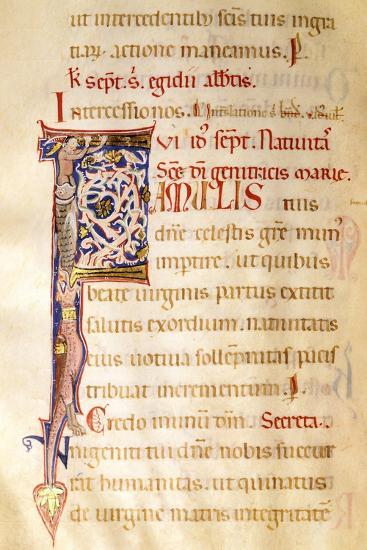 ut intercedentib; scīs tuis ingra
tiar actione maneamus. P
K sept. S. egidii abbtis.
Intercessio nos. In
VI id' sept. Natiuita
Scē dī genitricis marie.
FAMULIS tuis
dnē celestis grē mun
impertire. ut quibus
beate uirginis partus extitit
salutis exordium. natiuitatis
eius uotiua sollempnitas pacis
tribuat incrementum. P
Credo in unum dm̄. Secreta.
Unigeniti tui dnē nobis succur
rat humanitas. ut qui natus
de uirgine matris integritatē